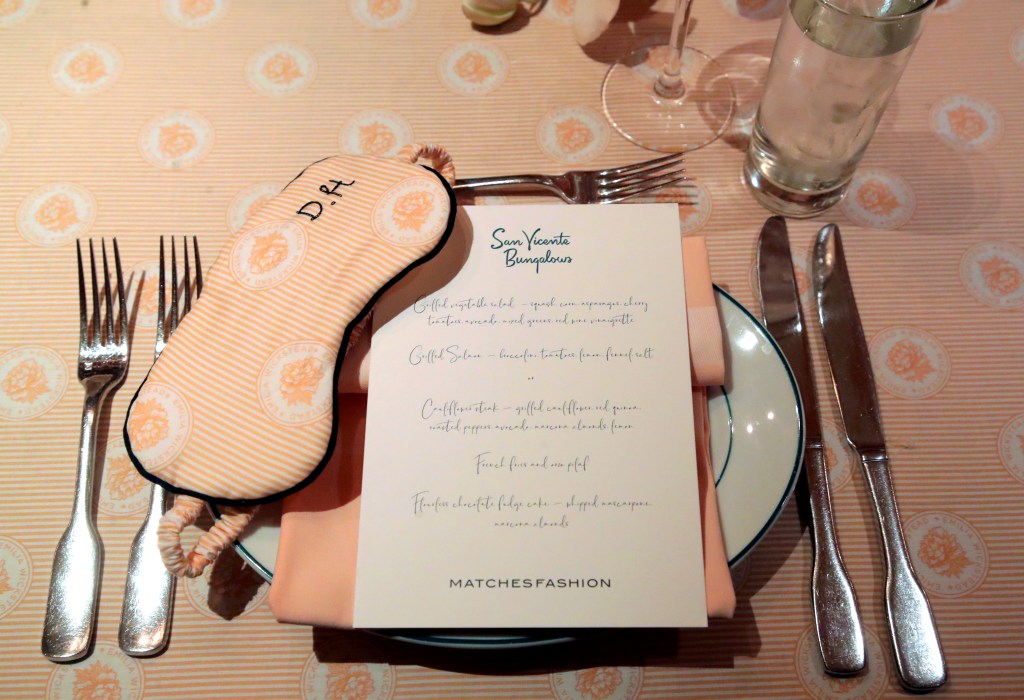 D.H
San Vicente
Bungalows
Grilled vegetable salad – squash corn asparagus cherry
tomatoes avocado mixed greens red wine vinaigrette
Grilled Salmon – broccolini tomatoes lemon fennel salt
or
Cauliflower steak – grilled cauliflower red quinoa
roasted peppers avocado marcona almonds lemon
French fries and orzo pilaf
Flourless chocolate fudge cake – whipped mascarpone
marcona almonds
MATCHESFASHION